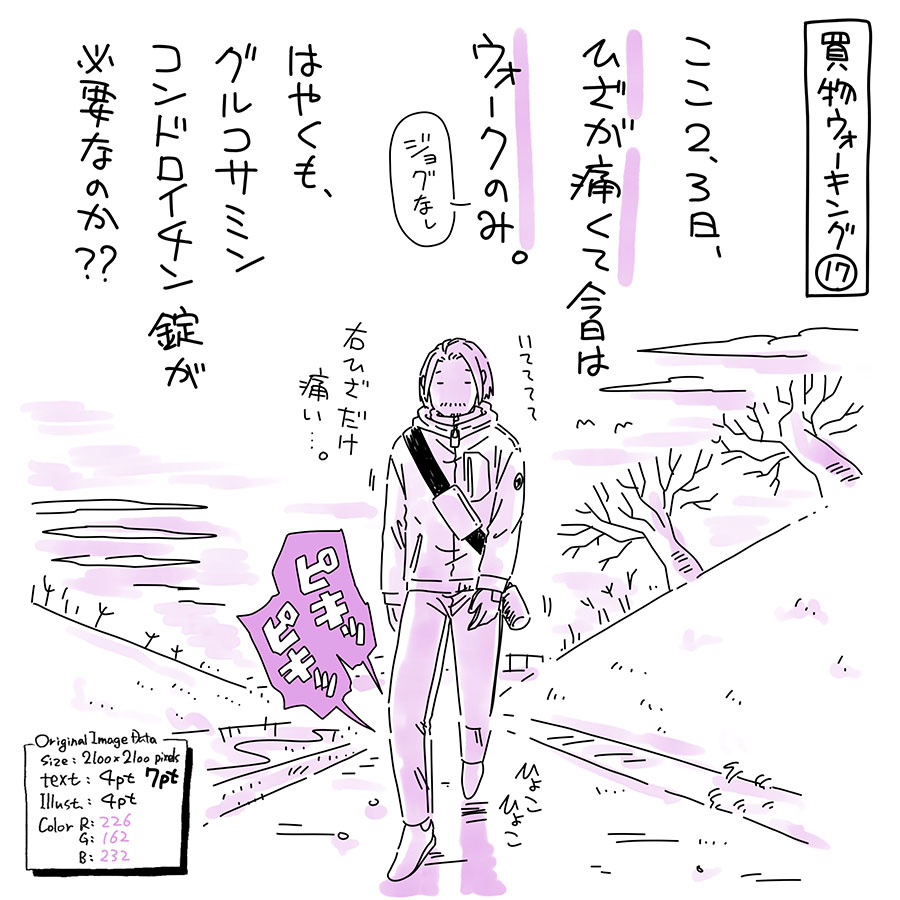 買物ウォーキング⑰
ここ2、3日、
ひざが痛くて今日は
ウォークのみ。
ジョグなし
はやくも、
グルコサミン
コンドロイチン錠が
必要なのか??
いてててて
右ひざだけ
痛い…。
ピキッ
ピキッ
ひょこ
ひょこ
Original Image Data
Size : 2100×2100 pixels
text : 4pt 7pt
Illust. : 4pt
Color R: 226
G: 162
B: 232